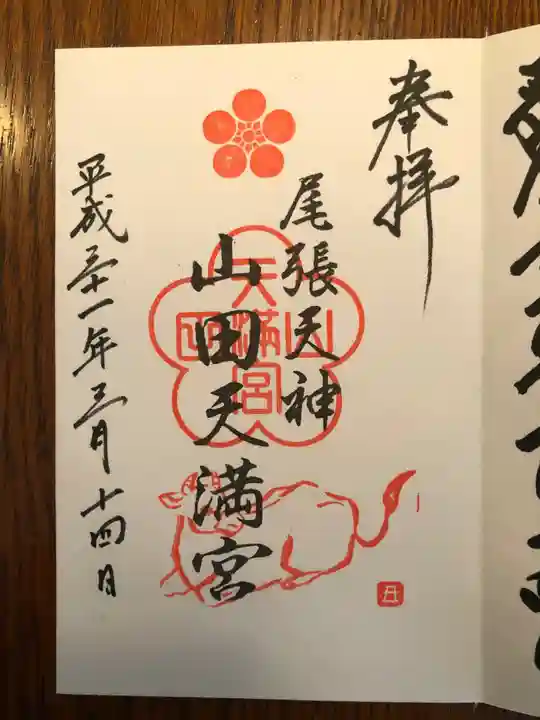 奉拝
尾張天神
山田天満宮
天満宮
山田
平成三十一年三月十四日
丑